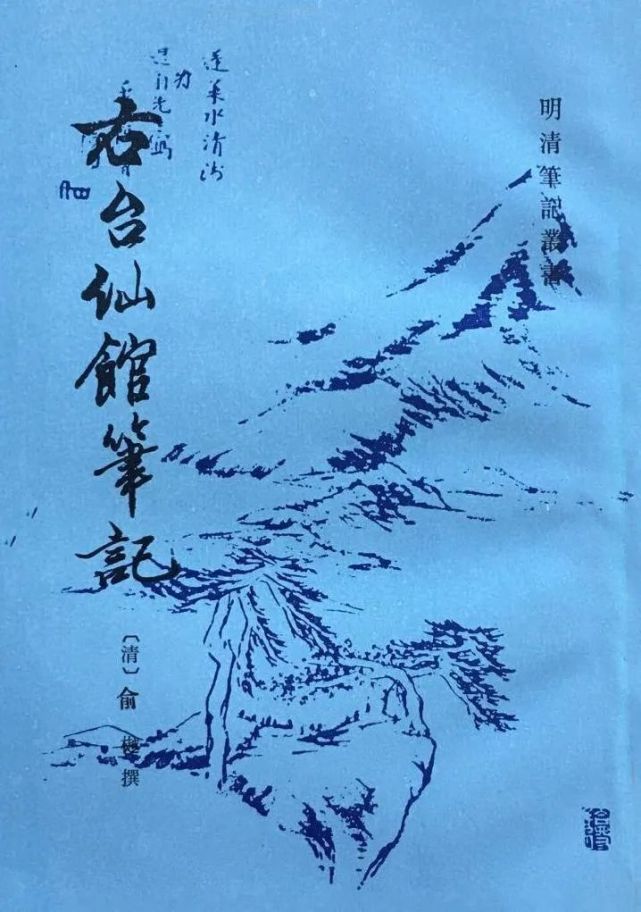 明清筆記叢書
右台仙館筆記
〔清〕俞樾撰